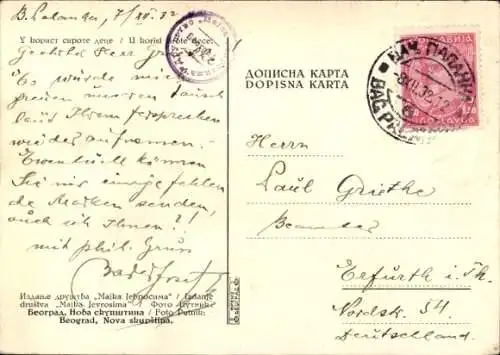 B. Palanka, 7/XII. 32
У корист сироте деце / U korist sirote dece
Es würde mich
freuen unseren Tausch
laut Ihrem
wieder aufnemen.-
Eventuell können
Sie mir einige fehlen
de Marken senden,
auch ich Ihnen?!
mit phil. Gruss
Издање друштва „Majka Јевросима“ / Izdanje
društva „Majka Jevrosima“ / Фото „Путник“
Београд, Нова скупштина / Foto Putnik:
Beograd, Nova skupština.
ДОПИСНА КАРТА
DOPISNA KARTA
БАЧ. ПАЛАНКА
-8.XII.32.12
BAČ. PALANKA
ЈУГОСЛАВИЈА
Herrn
Paul Griethe
Beamter
Erfurth i. Th.
Nordstr. 54.
Deutschland.